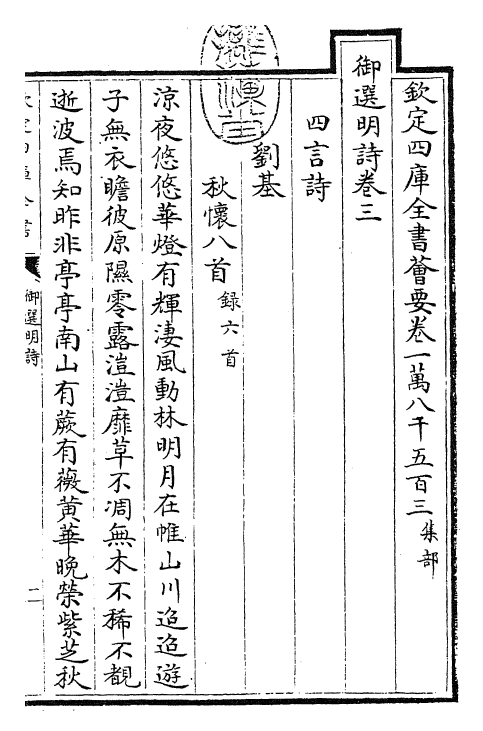 欽定四庫全書薈要卷一萬八千五百三集部
御選明詩卷三
四言詩
劉基
秋懷八首錄六首
涼夜悠悠華燈有輝淒風動林明月在帷山川迢迢遊
子無衣瞻彼原隰零露溰溰靡草不凋無木不稀不覩
逝波焉知昨非亭亭南山有蕨有薇黃華晚榮紫芝秋
御選明詩
二